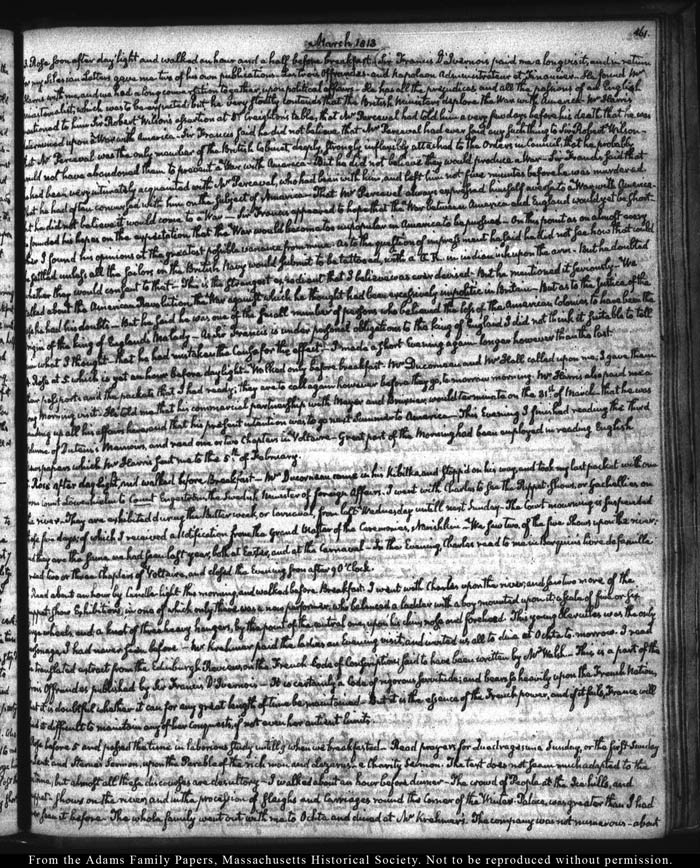 March 1813
461.
3. Rose soon after day light and walked an hour and a half before breakfast. Sir Francis D'Ivernois paid me a long visit, and in return
for my Silesian Letters gave me two of his own publications. Les trois Offrandes and Napoleon Administrateur et Financier. He found Mr
Harris with me and we had a long conversation together, upon political affairs. He has all the prejudices and all the passions of an English
which was to be expected but he very stoutly contends that the British Ministers deplore the War with America. Mr Harris
mentioned to him Sir Robert Wilson's assertion at Ld Creightons table, that Mr Perceval had told him a very few days before his death that he was
determined upon a War with America. Sir Francis said he did not believe that Mr Perceval had ever said any such thing to Sir Robert Wilson
that Mr Perceval was the only member of the British Cabinet deeply, strongly inflexibly attached to the Orders in Council, that he probably
would not have abandoned them to prevent a War with America. But he did not believe they would produce a War. Sir Francis said that
had been very intimately acquainted with Mr Perceval, who had been with him, and left him not five minutes before he was murdered.
that he had often conversed with him on the subject of America. That Mr Perceval always expressed himself averse to a War with America
but he did not believe it would come to a War. Sir Francis appeared to hope that the War between America and England would yet be short
founded his hopes on the expectation that the War would become too unpopular in America to be pursued. On this point as on almost every
other I found his opinions at the greatest possible variance from mine. As to the question of impressment he said he did not see how that could
be settled unless all the sailors in the British Navy would submit to be tattooed, with a G. R. in indian ink upon the arm. But he doubted
whether they would consent to that. This is the strangest expedient that I believe was ever devised. But he mentioned it seriously. We
talked about the American Revolution the War against which he thought had been excessively impolitic in Britain. But as to the Justice of the
he had his doubts. But he said he was one of the small number of persons who believed the loss of the American Colonies to have been the
origin of the king of England's Malady. As Sir Francis is under personal obligations to the king of England I did not think it suitable to tell
him what I thought that he had mistaken the Cause for the effect. I made a short Evening again longer however than the last
Rose at 5 which is yet an hour before day light. Walked only before breakfast. Mr Ducorneau and Mr Hall called upon me; I gave them
their passports and the packets that I had ready; they are to call again however before they go, to-morrow morning. Mr Harris also paid me a
long morning visit. He told me that his commercial partnership with Mayer and Bruxner would terminate on the 31st of March that he was
winding up all his affairs here and that his present intention was to go next Summer to America. This Evening I finished reading the third
volume of Dutens's Memoirs, and read one or two Chapters in Voltaire. Great part of the Morning had been employed in reading English
newspapers which Mr Harris sent me to the 5th of February.
Rose after day light, and walked before Breakfast. Mr Ducorneau came in his Kibitka and stopp'd on his way, and took my last packet with one
from Count to Count Engeström the Swedish Minister of foreign Affairs. I went with Charles to see the Puppet Shows, or on
the river. They are exhibited during the Butter week or Carnaval, from last Wednesday until next Sunday. The Court mourning is suspended
these five days; of which I received a Notification from the Grand Master of the Ceremonies, Narishkin. We saw two of the five Shows upon the river.
they are the same we had seen last year, both at Easter, and at the Carnaval. In the Evening, Charles read to me in Berquin's livre de famille
read two or three Chapters of Voltaire, and closed the Evening soon after 9 O'Clock.
Read about an hour by Candle-light this morning, and walked before Breakfast. I went with Charles upon the river, and saw two more of the
puppet show Exhibitions, in one of which only there was a new performer, who balanced a ladder with a boy mounted upon it, a of five or six
wheels, and a knot of three heavy hangers, by the point of the central one, upon his chin, nose and forehead. This young was the only
I had never seen before. Mr Krehmer paid the ladies an Evening visit, and invited us all to dine at Ochta to-morrow. I read
a translated extract from the Edinburgh Review on the French Code of Conscription, said to have been written by Mr Walsh. This is a part of the
trois Offrandes published by Sir Francis D'Ivernois. It is certainly a Code of rigorous servitude; and bears so heavily upon the French Nation,
that it is doubtful whether it can for any great length of time be maintained. But it is the essence of the French power, and if it fails, France will
find it difficult to maintain any of her conquests, if not even her antient limits.
Rose before 5 and passed the time in laborious study until 9 when we breakfasted. Read prayers for Quadragesima Sunday, or the first Sunday
in Lent and Sterne's Sermon, upon the Parable of the rich man and Lazarus. a Charity Sermon. The text does not seem much adapted to the
, but almost all these discourses are desultory. I walked about an hour before dinner. The crowd of People at the Ice hills, and
puppet-shows on the river, and in the procession of Sleighs and Carriages round this corner of the Winter-Palace, was greater than I had
ever seen it before. The whole family went out with me to Ochta and dined at Mr Krehmer's. The company was not numerous. about
From the Adams Family Papers, Massachusetts Historical Society. Not to be reproduced without permission.